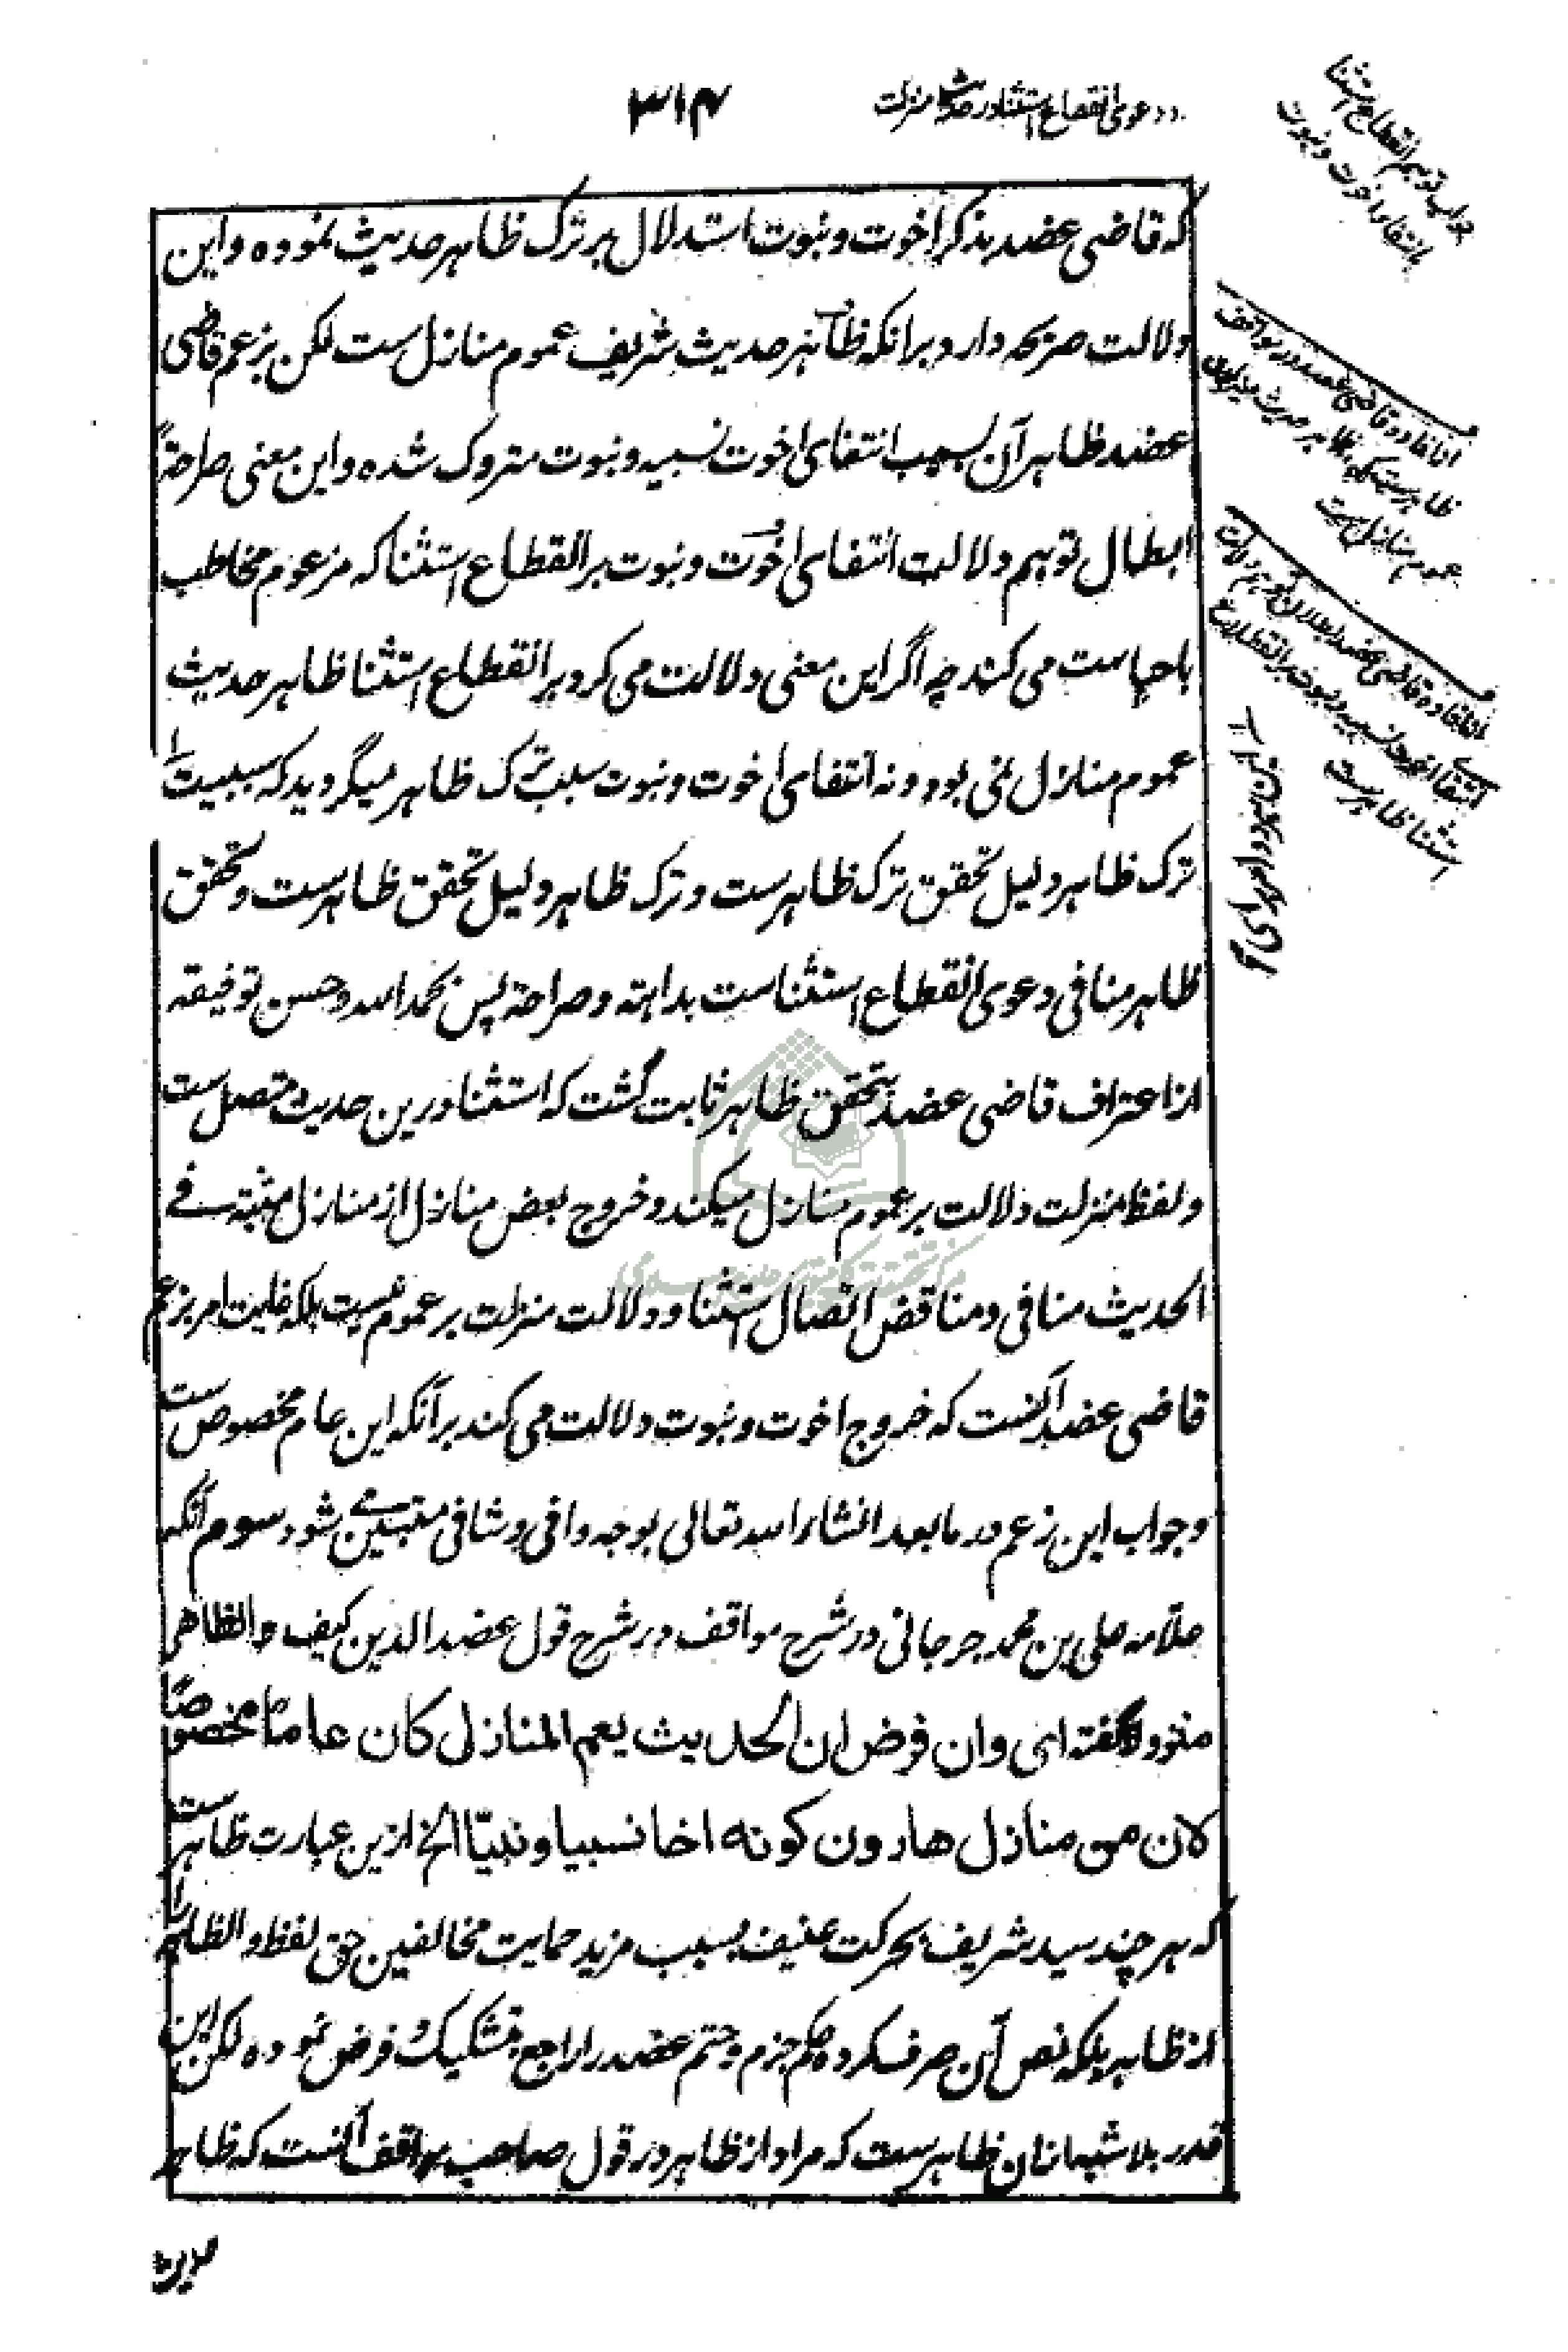 رد دعوی انقطاع استثنا در حدیث منزلت
۳۱۴
جواب توهم انقطاع استثنا
بانتفاء اخوت و نبوت
که قاضی عضد بذکر اخوت و نبوت استدلال بر ترک ظاهر حدیث نموده و این
دلالت صریحه دارد برانکه ظاهر حدیث شریف عموم منازل ست لکن بزعم قاضی
عضد ظاهر آن بسبب انتفای اخوت نسبیه و نبوت متروک شده و این معنی صراحةً
ابطال توهم دلالت انتفای اخوت و نبوت بر انقطاع استثنا که مزعوم مخاطب
با حیاست می کند چه اگر این معنی دلالت می کرد بر انقطاع استثنا ظاهر حدیث
عموم منازل نمی بود و نه انتفای اخوت و نبوت سبب ترک ظاهر میگردید که سببیت
ترک ظاهر دلیل تحقق ترک ظاهرست و ترک ظاهر دلیل تحقق ظاهرست و تحقق
ظاهر منافی دعوی انقطاع استثناست بداهته و صراحة پس بحمد الله و حسن توفیقه
از اعتراف قاضی عضد بتحقق ظاهر ثابت گشت که استثنا درین حدیث متصل ست
و لفظ منزلت دلالت بر عموم منازل میکند و خروج بعض منازل از منازل مثبته فی
الحدیث منافی و مناقض اتصال استثنا و دلالت منزلت بر عموم نیست بلکه غایت امر بزعم
قاضی عضد آنست که خروج اخوت و نبوت دلالت می کند برآنکه این عام مخصوص ست
و جواب این زعم در ما بعد انشاء الله تعالی بوجه وافی و شافی متبین می شود سوم آنکه
علامه علی بن محمد جرجانی در شرح مواقف در شرح قول عضد الدین کیف والظاهر
متروک گفته ای وان فرض ان الحدیث یعم المنازل کان عامًا مخصوصًا
لان من منازل هارون کونه اخا نسبیا ونبیّا الخ ازین عبارت ظاهرست
که هر چند سید شریف بحرکت عنیف بسبب مزید حمایت مخالفین حق لفظ والظاهر را
از ظاهر بلکه نص آن صرف کرده حکم جزم و حتم عضد را راجع بتشکیک و فرض نموده لکن این
قدر بلا شبهه ازان ظاهرست که مراد از ظاهر در قول صاحب مواقف آنست که ظاهر
افاده قاضی عضد در مواقف
ظاهرست که ظاهر حدیث
عموم منازل ست
از افاده قاضی عضد بطلان توهم دلالت
انتفاء اخوت نسبیه و نبوت بر انقطاع
استثنا ظاهرست